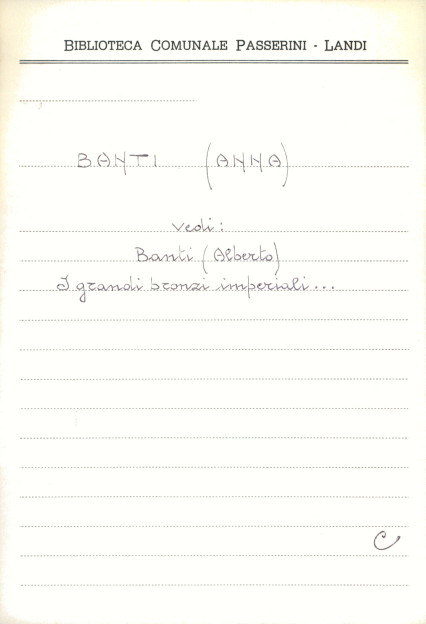 BIBLIOTECA COMUNALE PASSERINI - LANDI
BANTI (ANNA)
vedi:
Banti (Alberto)
I grandi bronzi imperiali...
C